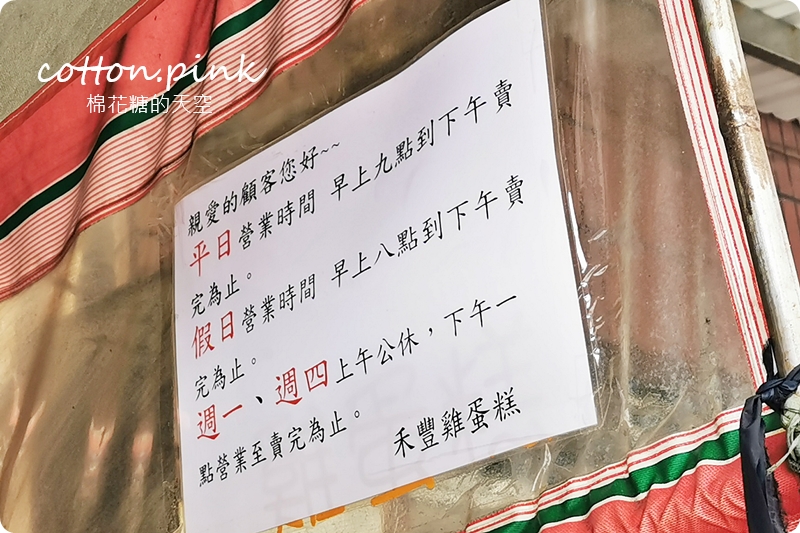 cotton.pink
棉花糖的天空
親愛的顧客您好~~
平日營業時間 早上九點到下午賣
完為止。
假日營業時間 早上八點到下午賣
完為止。
週一、週四上午公休，下午一
點營業至賣完為止。
禾豐雞蛋糕